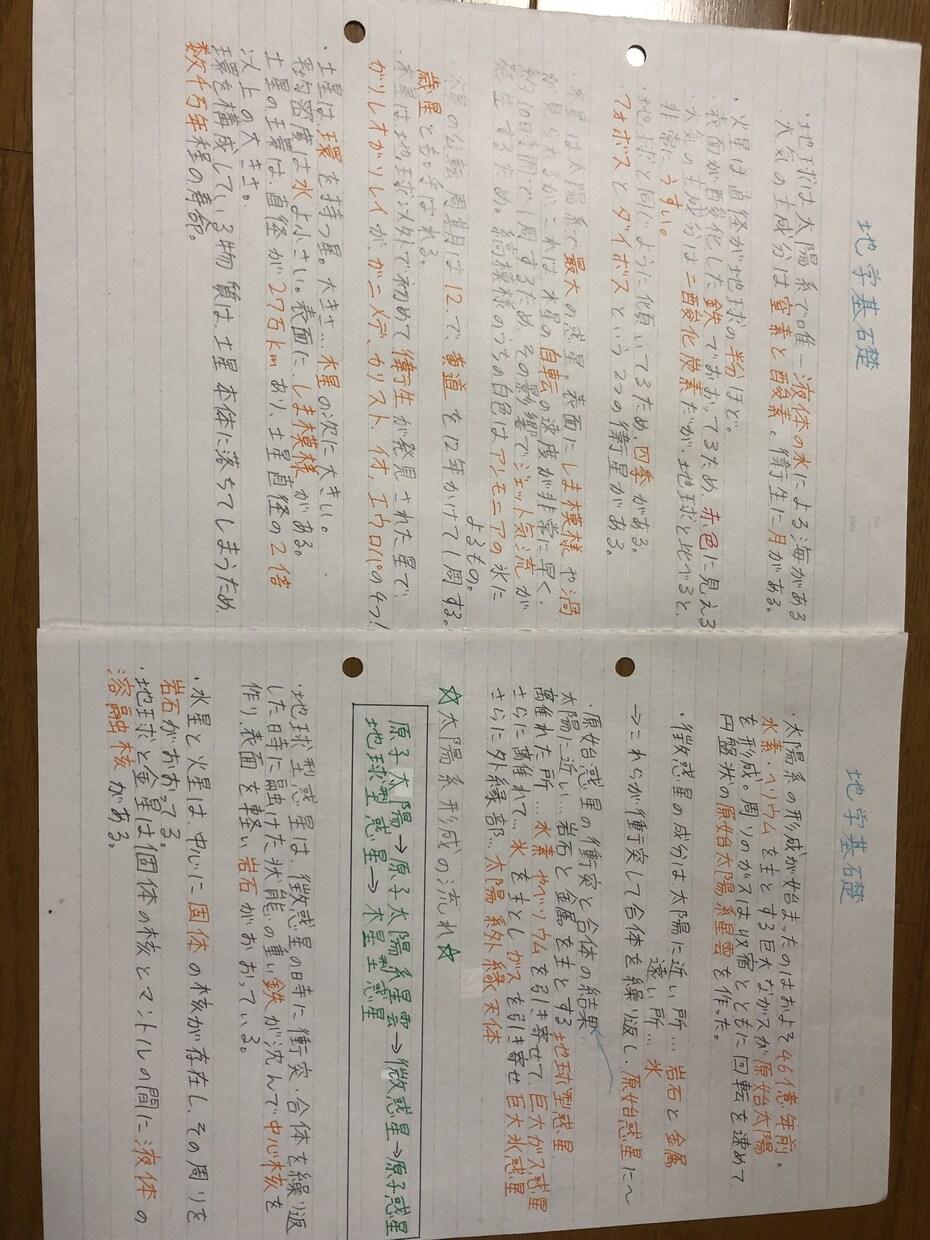 地学基礎
・地球は太陽系で唯一液体の水による海がある
大気の主成分は窒素と酸素。衛生に月がある。
・火星は直径が地球の半分ほど。
表面が酸化した鉄でおおってるため、赤色に見える
大気の主成分は二酸化炭素だが、地球と比べると、
非常にうすい。
・地球と同じように傾いてるため、四季がある。
フォボスとダイボスという2つの衛星がある。
・木星は太陽系で最大の惑星。表面にしま模様や渦
が見られるがこれは木星の自転の速度が非常に早く、
約10時間で1周するため、その影響でジェット気流が
発生するため。縞模様のうちの白色はアンモニアの氷に
よるもの。
木星の公転周期は12で、黄道を12年かけて1周する。
歳星とも呼ばれる。
・木星は地球以外で初めて衛生が発見された星で、
ガリレオガリレイがガニメデ、カリスト、イオ、エウロパの4つ!
・土星は環を持つ星。大きさ…木星の次に大きい。
平均密度は水より小さい。表面にしま模様がある。
土星の主環は、直径が27万kmあり、土星直径の2倍
以上の大きさ。
環を構成している物質は、土星本体に落ちてしまうため
数千万年程の寿命。
地学基礎
・太陽系の形成が始まったのはおよそ46億年前。
水素・ヘリウムを主とする巨大なガスが原始太陽
を形成。周りのガスは収縮とともに回転を速めて
円盤状の原始太陽系星雲を作った。
・微惑星の成分は太陽に近い所…岩石と金属
遠い所…氷
→これらが衝突して合体を繰り返し、原始惑星に〜
・原始惑星の衝突と合体の結果
太陽に近い…岩石と金属を主とする地球型惑星
離れた所…水素やヘリウムを引き寄せて巨大ガス惑星
さらに離れて…氷を主としガスを引き寄せ巨大氷惑星
さらに外縁部…太陽系外縁天体
☆太陽系形成の流れ☆
原子太陽→原子太陽系星雲→微惑星→原子惑星
地球型惑星→木星型惑星
・地球型惑星は、微惑星の時に衝突・合体を繰り返
した時に融けた状態の重い鉄が沈んで中心核を
作り、表面を軽い岩石がおおっている。
・水星と火星は、中心に固体の核が存在し、その周りを
岩石がおおってる。
・地球と金星は個体の核とマントルの間に液体の
溶融核がある。